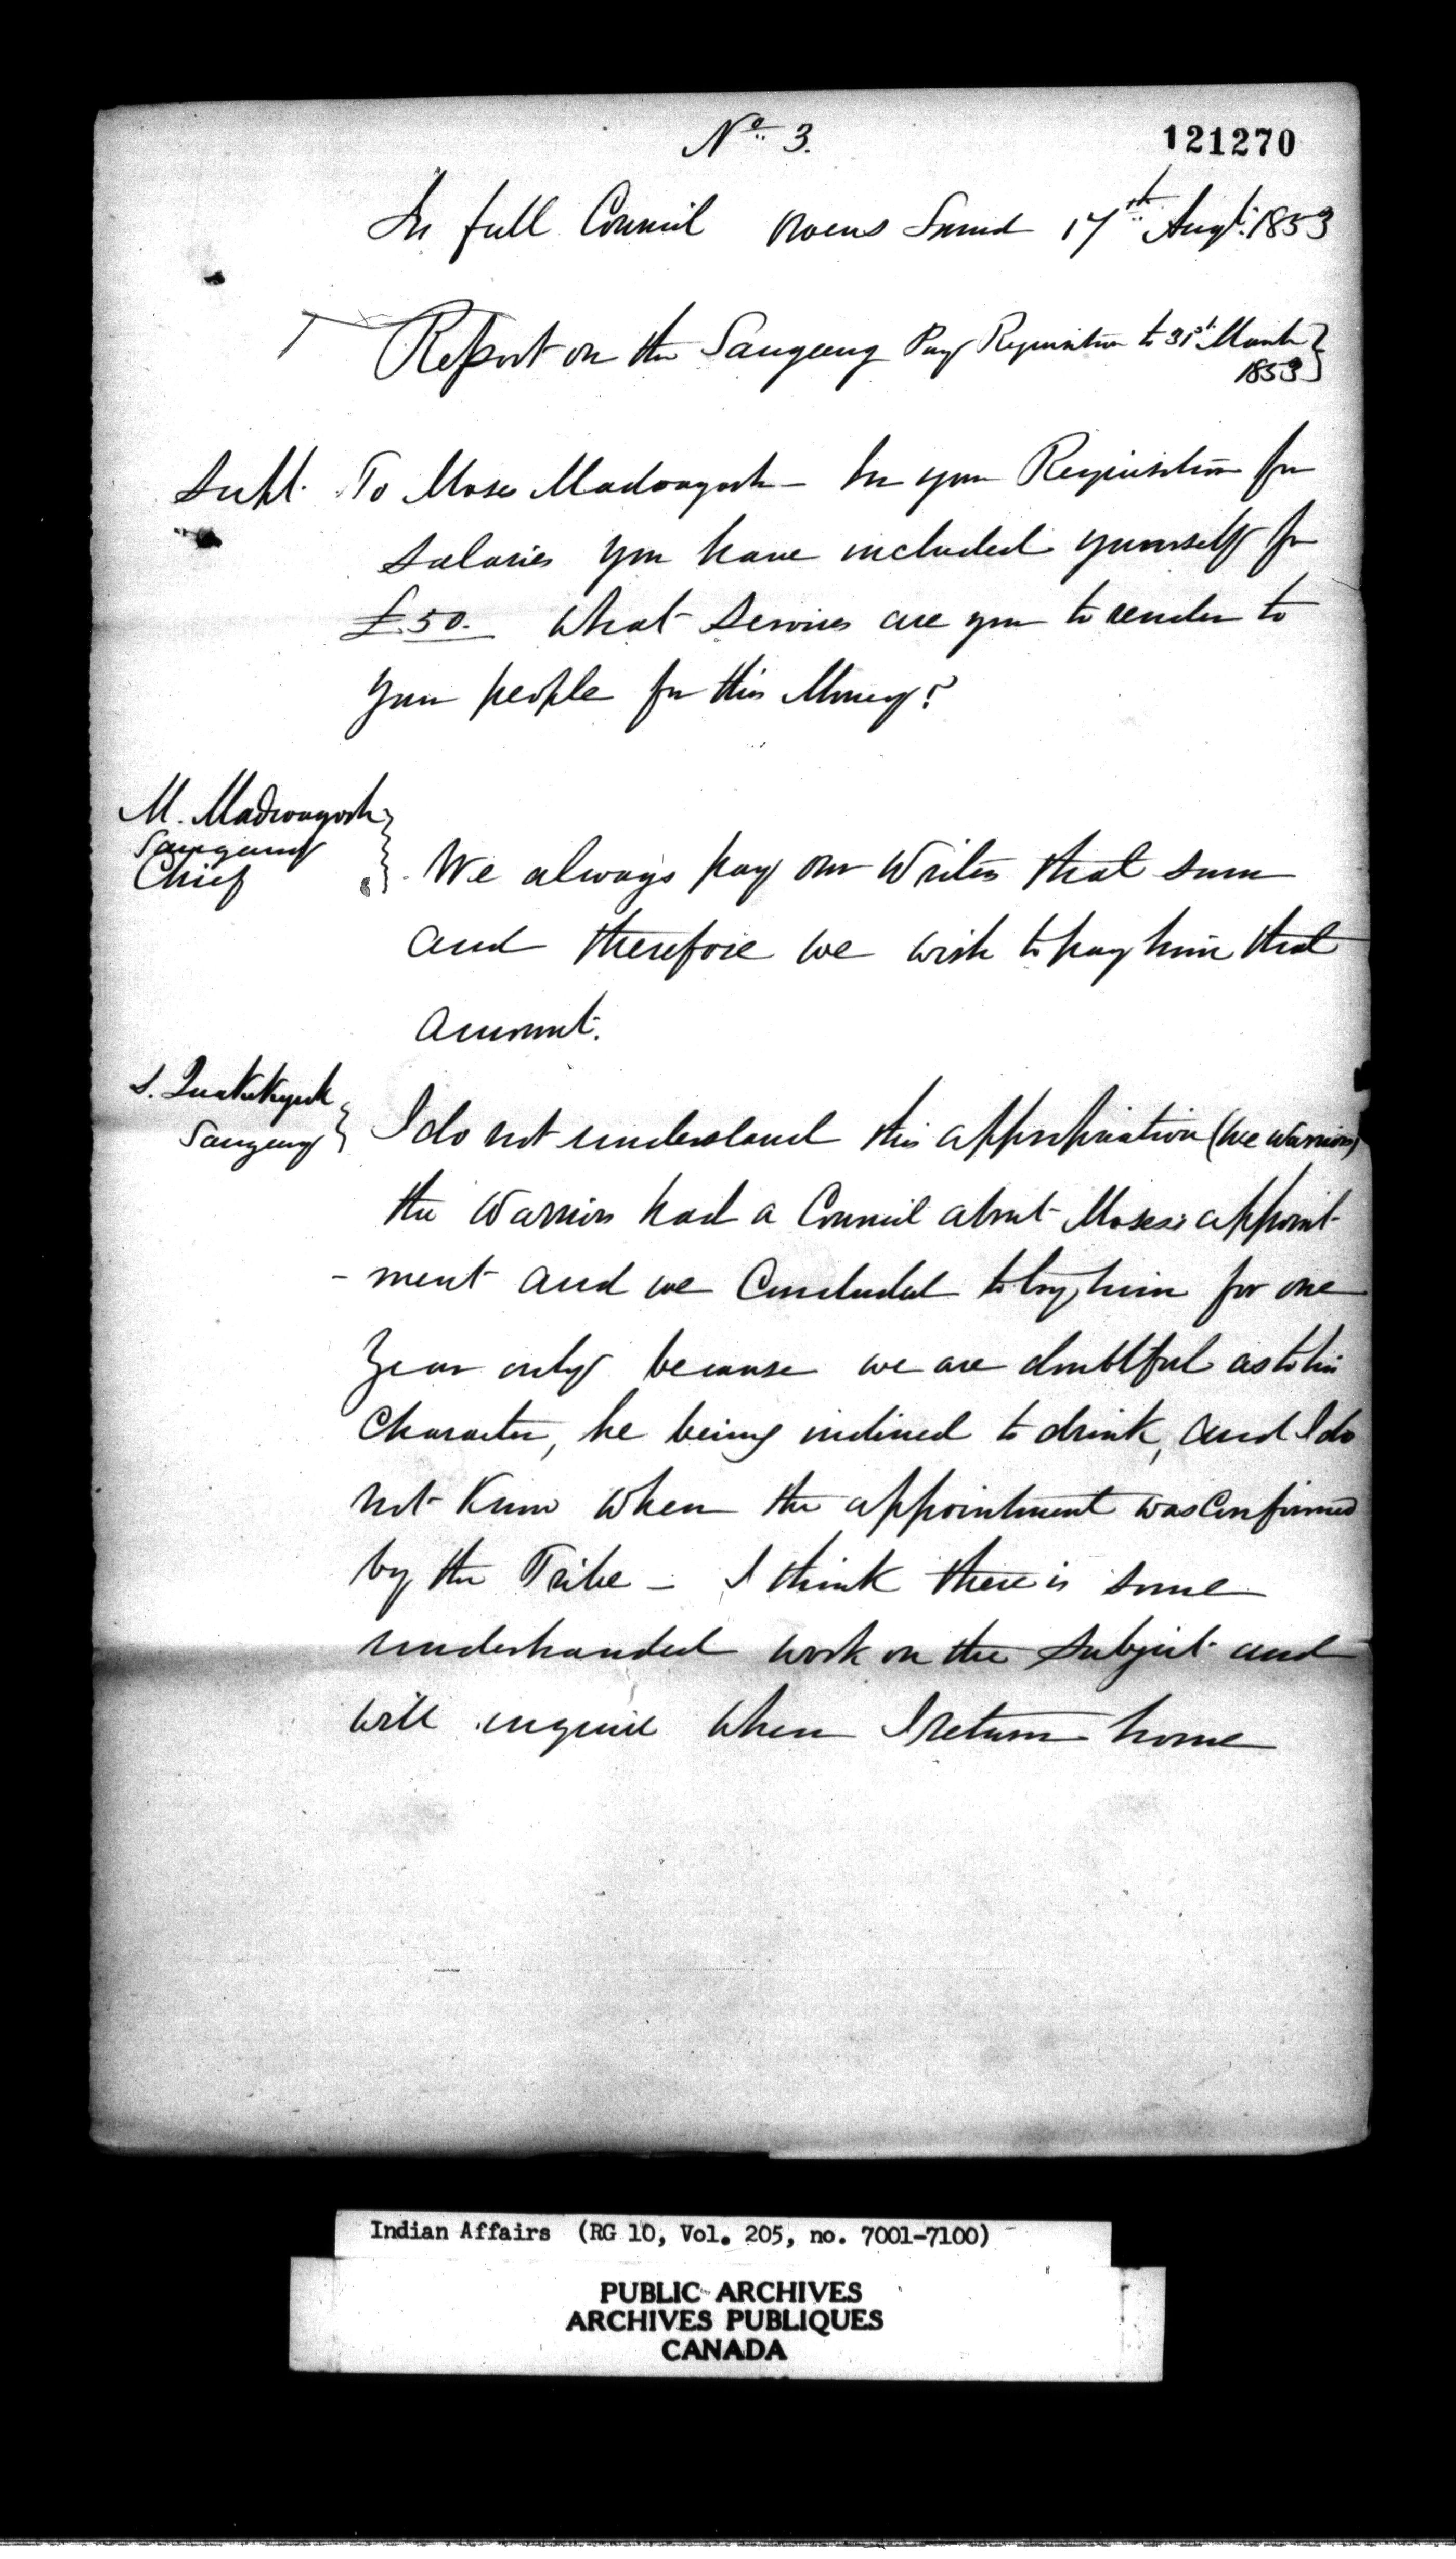 No. 3.
121270
In full Council Owens Sound 17th Augt. 1853
Report on the Saugeeng Pay Requisition to 31st March
1853
Supt. To Moses Madwayosh - In your Requisition for
salaries you have included yourself for
£50. What services are you to render to
your people for this Money?
M. Madwayosh
Saugeeng
Chief
We always pay our Writer that sum
and therefore we wish to pay him that
amount.
Saugeeng
I do not understand this appropriation (we warriors)
the Warriors had a Council about Moses's appoint-
-ment and we Concluded to try him for one
Year only because we are doubtful as to his
Character, he being inclined to drink, and I do
not Know when the appointment was Confirmed
by the Tribe - I think there is some
underhanded work on the subject and
will enquire when I return home
Indian Affairs (RG 10, Vol. 205, no. 7001-7100)
PUBLIC ARCHIVES
ARCHIVES PUBLIQUES
CANADA